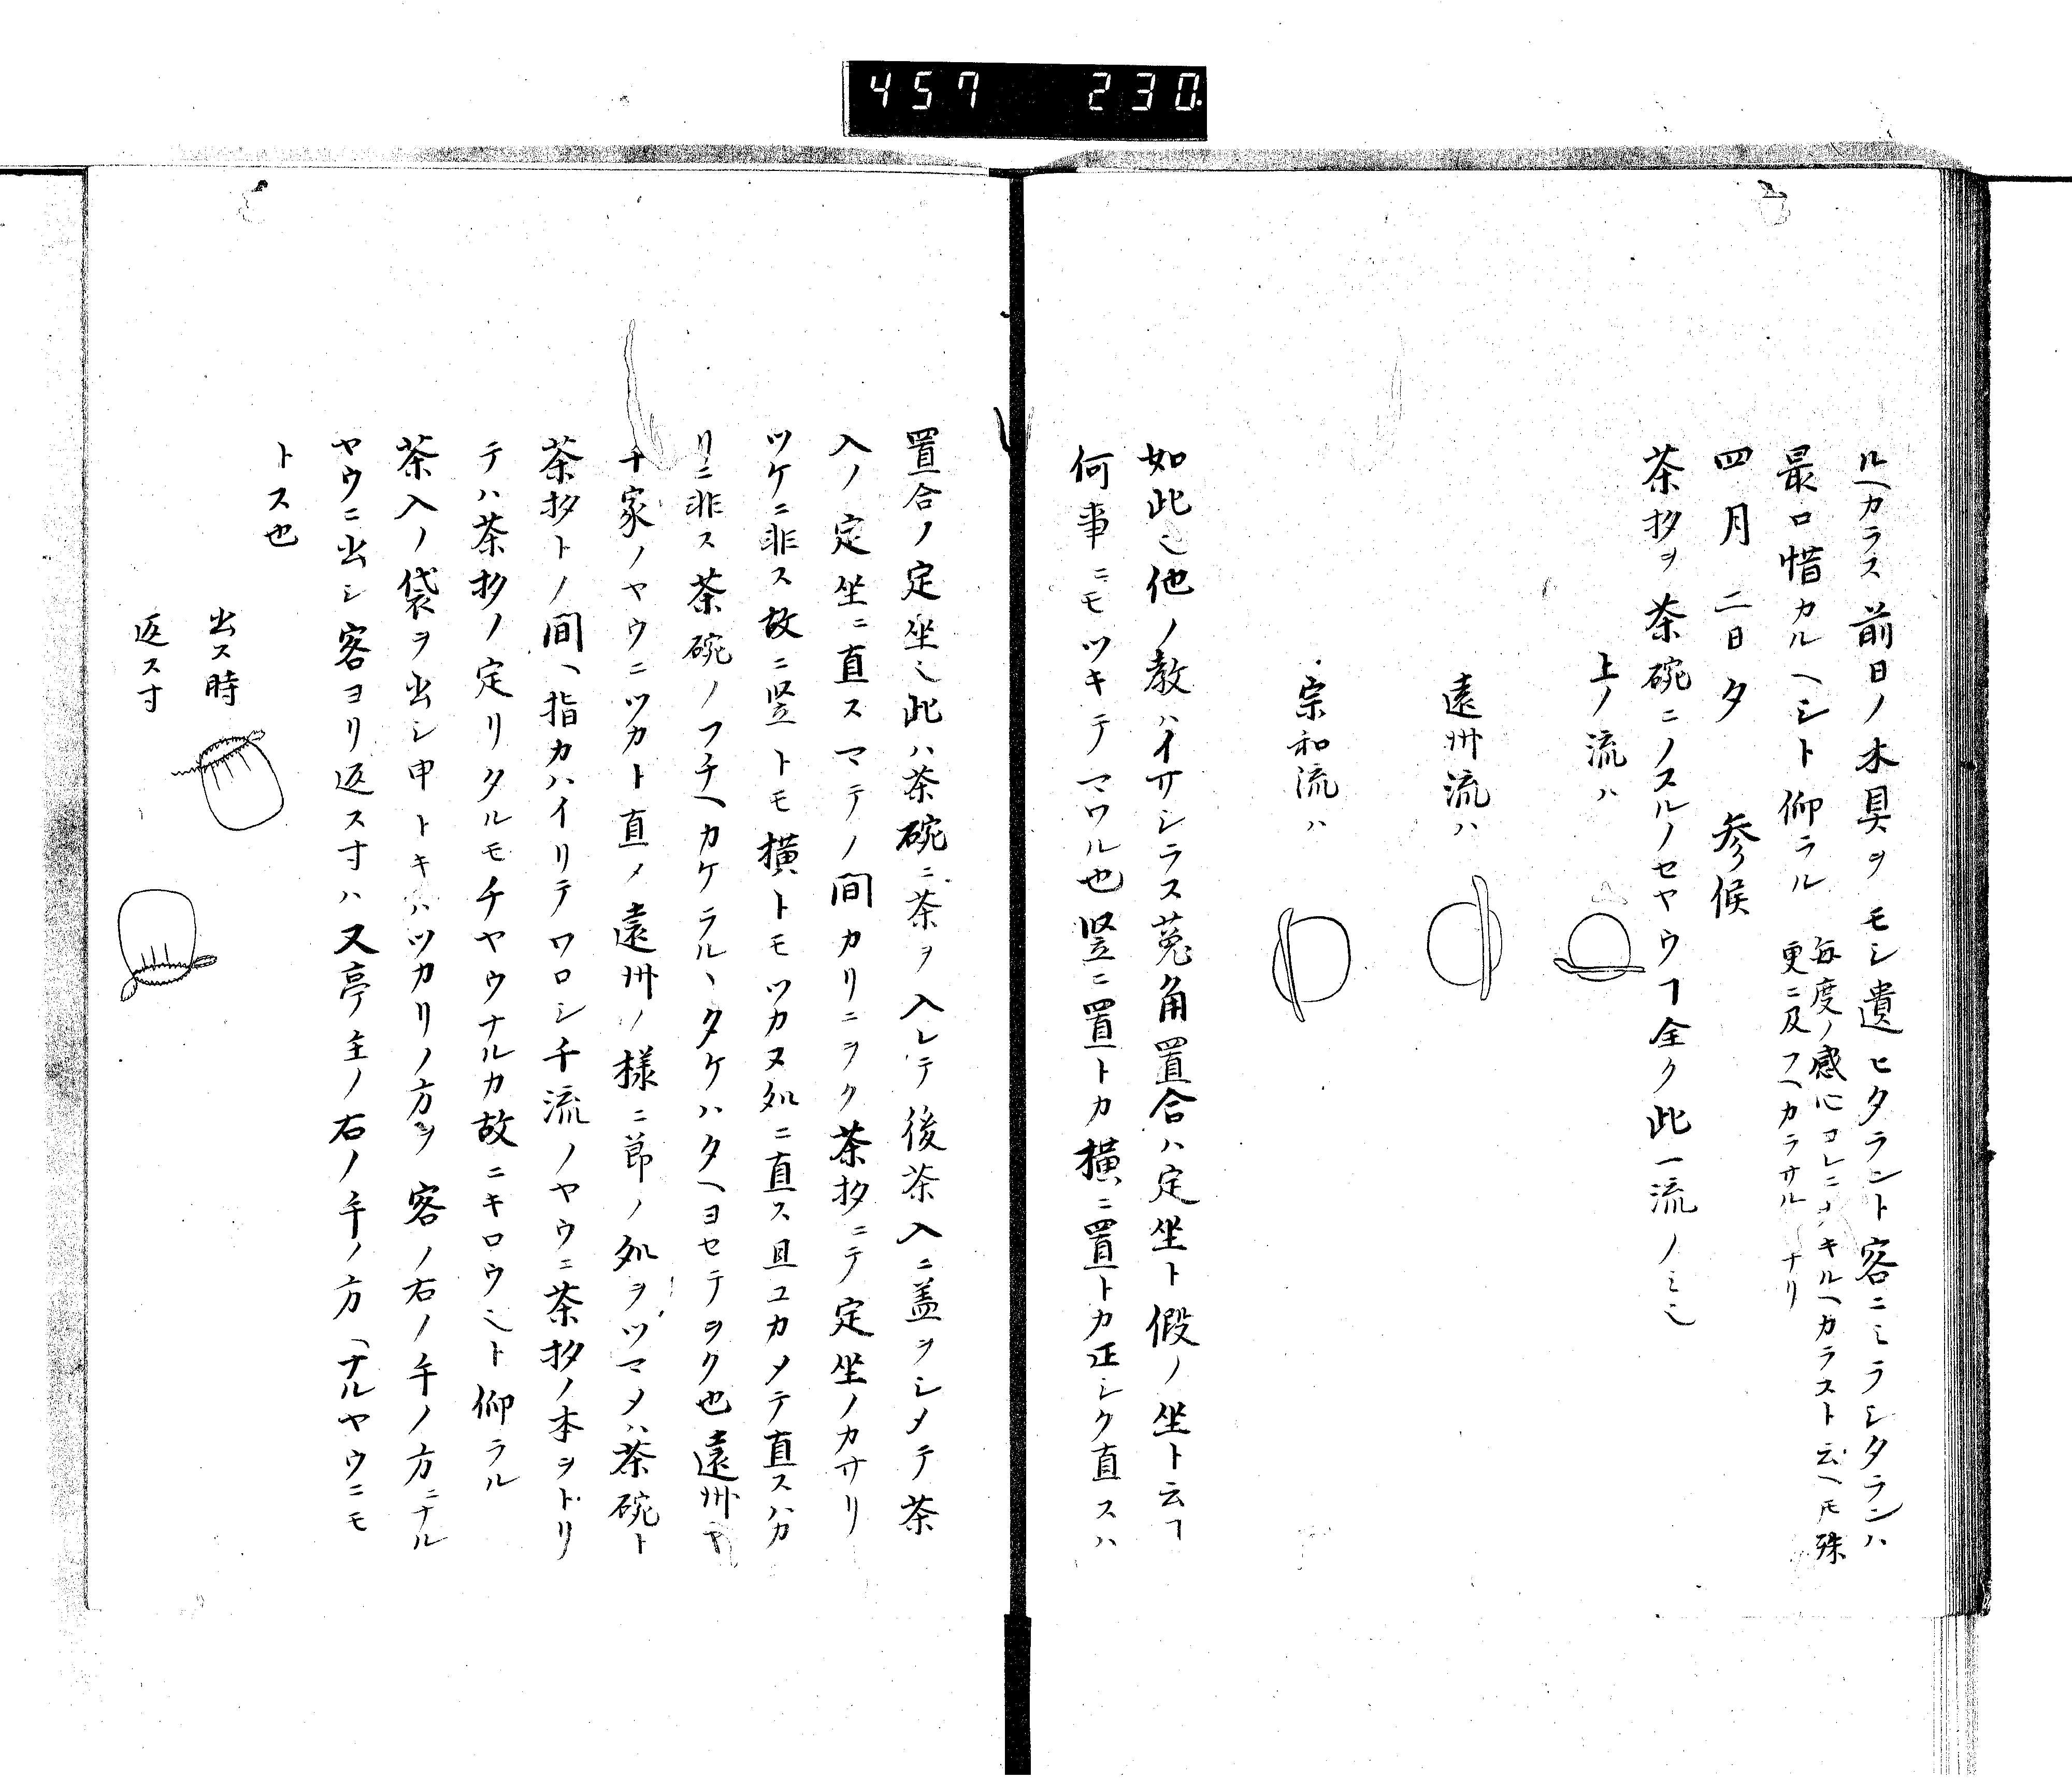 457 230
ルヘカラス前日ノ木具ヲモシ遺ヒタラント客ニミラシタランハ
最口惜カルヘシト仰ラル 毎度ノ感心コレニヲキルヘカラスト云ヘトモ殊
更ニ及フヘカラサルナリ
四月二日夕 参候
茶杓ヲ茶碗ニノスルノセヤウヿ全ク此一流ノミ也
上ノ流ハ
遠州流ハ
宗和流ハ
如此也他ノ教ハイサシラス菟角置合ハ定坐ト假ノ坐ト云ヿ
何事ニモツキテマワル也竪ニ置トカ横ニ置トカ正シク直スハ
置合ノ定坐也此ハ茶碗ニ茶ヲ入レテ後茶入ニ蓋ヲシメテ茶
入ノ定坐ニ直スマテノ間カリニヲク茶杓ニテ定坐ノカサリ
ツケニ非ス故ニ竪トモ横トモツカヌ処ニ直ス且ユカメテ直スハカ
リニ非ス茶碗ノフチヘカケラルヽタケハタヘヨセテヲク也遠州ヤ
千家ノヤウニツカト直メ遠州ノ様ニ節ノ処ヲツマメハ茶碗ト
茶杓トノ間ヘ指カハイリテワロシ千流ノヤウニ茶杓ノ本ヲトリ
テハ茶杓ノ定リタルモチヤウナルカ故ニキロウ也ト仰ラル
茶入ノ袋ヲ出シ申トキハツカリノ方ヲ客ノ右ノ手ノ方ニナル
ヤウニ出シ客ヨリ返ス寸ハ又亭主ノ右ノ手ノ方ヘナルヤウニモ
トス也
出ス時
返ス寸